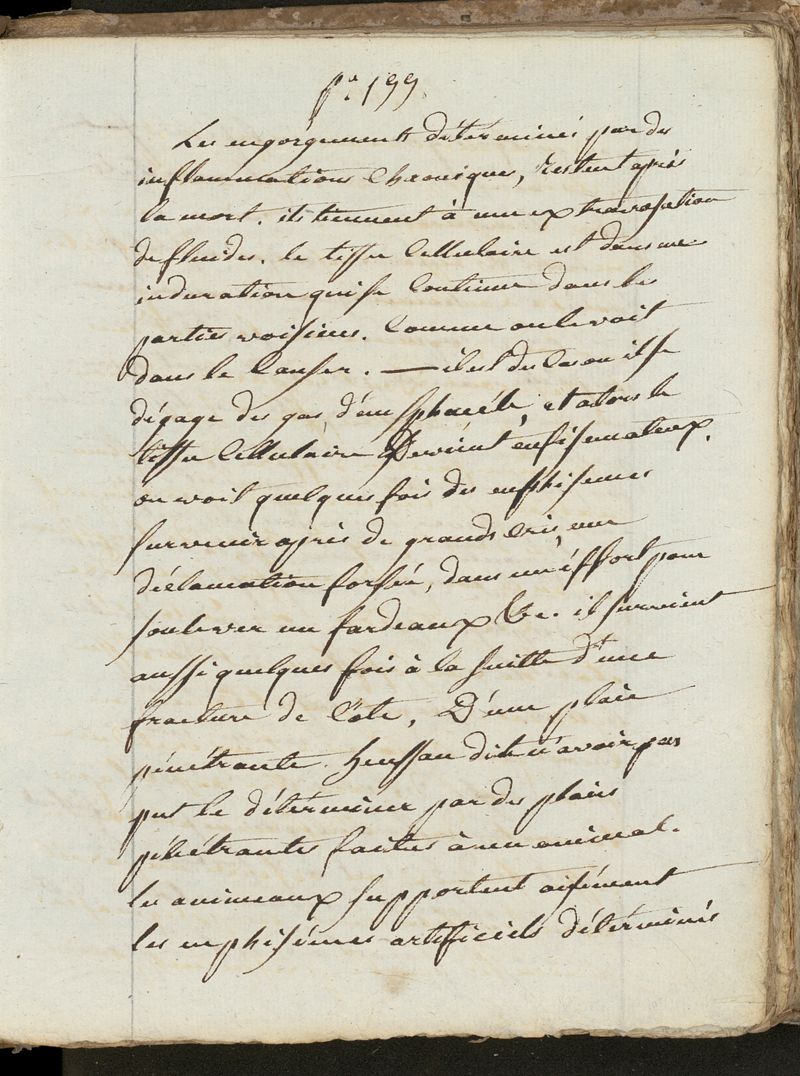 pe 199.
Les engorgements déterminés par des
inflammations Chroniques, restent après
la mort. ils tiennent à une extravasation
de fluides. le tissu Cellulaire est dans une
induration qui se Continue dans les
parties voisines. Comme on le voit
dans le Canser. — il est des Cas ou il se
dégage des gas d'un sphacéle, et alors le
tissu Cellulaire Devient enfisemateux.
on voit quelques fois des emphisemes
survenir après de grands Cris, une
déclamation forsée, dans un éffort pour
soulever un fardeaux &c. il survient
aussi quelques fois à la suitte d'une
fracture de Côte, D'une plaie
pénétrante. hussan dit n'avoir pas
put le déterminer par des plaies
pénétrantes faites à un animal.
les animeaux supportent aisément
les emphisémes artificiels déterminés